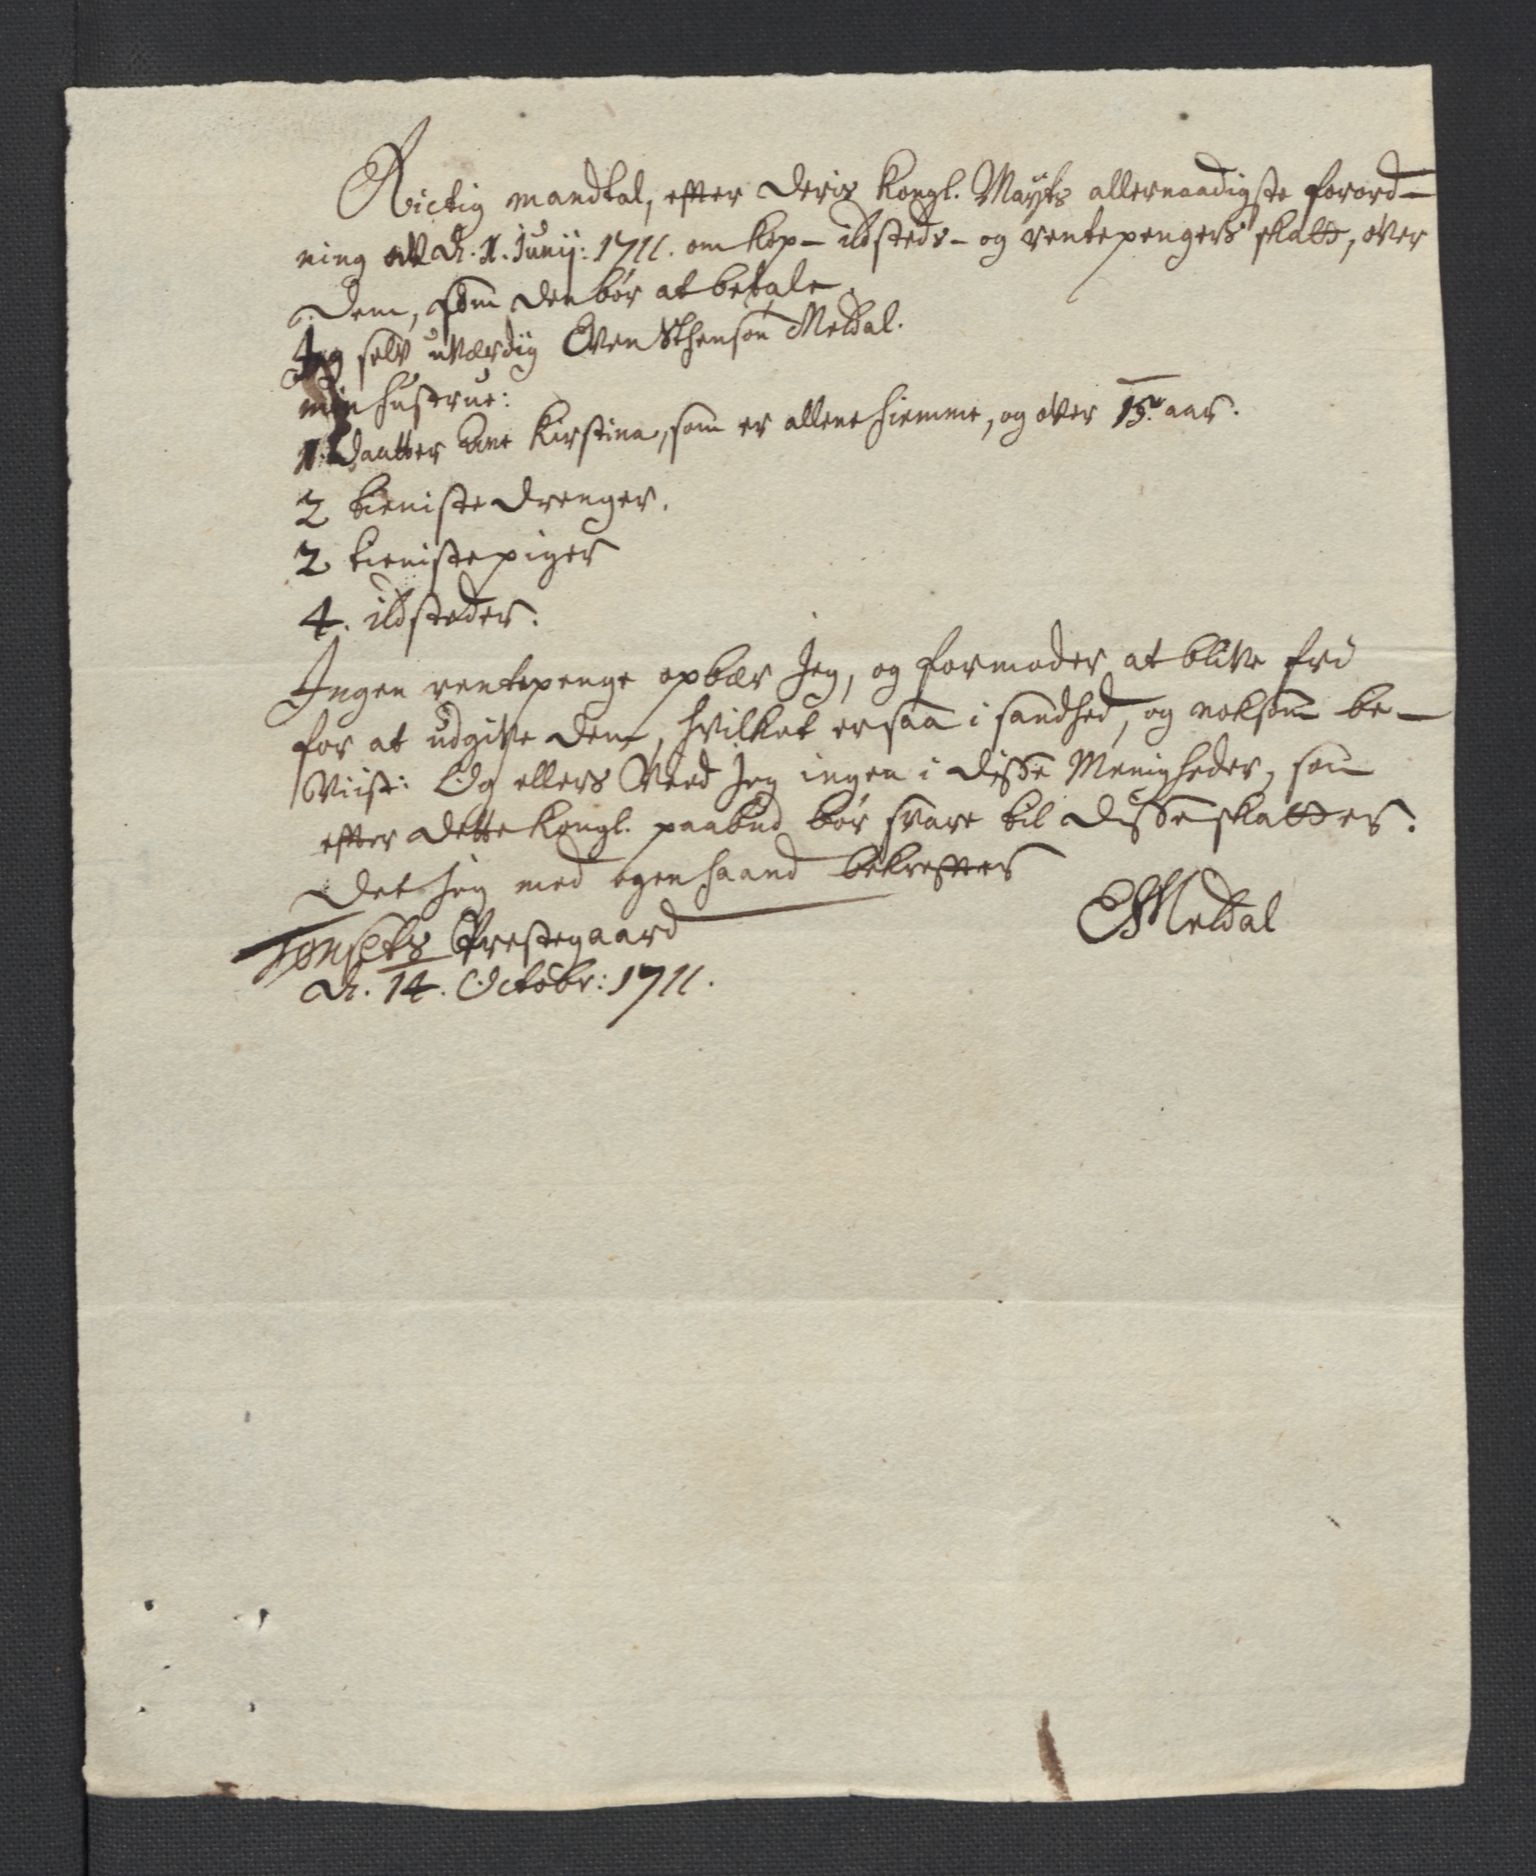 Rictig mandtal, efter deris Kongl. Mayts allernaadigste forord-
ning av d. 1. Junij: 1711. om kop- ildsteds- og rentepengers skatt, over
dem, som den bør at betale.
Jeg selv uværdig Even Sthensøn Meldal.
min hustrue:
1. Daatter Ane Kirstina, som er allene hiemme, og over 15. aar.
2 tieniste drenger.
2. tienistepiger
4. ildsteder.
Ingen rentepenge opbær Jeg, og formoder at blive fri
for at udgive dem, hvilket er saa i sandhed, og noksom be-
viist: Og ellers Veed Jeg ingen i disse Menigheder, som
efter dette Kongl. paabud bør svare til disse skatter.
Det Jeg med egen haand bekrefter
Tønsets Prestegaard
EMeldal
d. 14. Octobr: 1711.